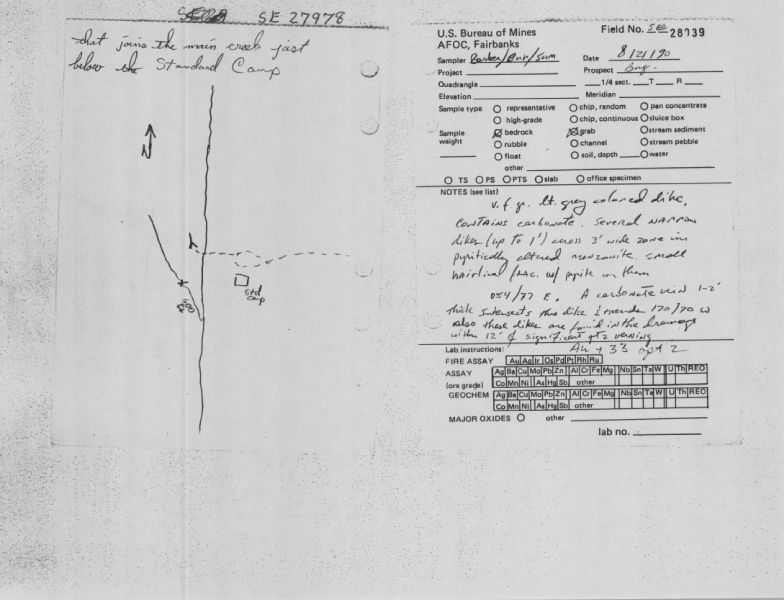 SE 27978
that joins the main creek just
below the Standard Camp
N
Std
Camp
U.S. Bureau of Mines
AFOC, Fairbanks
Field No. SE 28139
Sampler
Date 8/21/90
Project
Prospect
Quadrangle 1/4 sect. T R
Elevation Meridian
Sample type representative chip, random pan concentrate
high-grade chip, continuous sluice box
Sample bedrock grab stream sediment
weight rubble channel stream pebble
float soil, depth water
other
TS PS PTS slab office specimen
NOTES (see list)
v. f. g. lt. grey colored dike,
contains carbonate. Several narrow
dikes (up to 1') across 3' wide zone in
pyritically altered monzonite. small
hairline frac. w/ pyrite on them
054/77 E. A carbonate vein 1-2'
thick intersects this dike & trends 170/70 W
also these dikes are found in the drainage
within 12' of significant qtz veining
Lab instructions: Au + 33 opt 2
FIRE ASSAY Au Ag Ir Os Pd Pt Rh Ru
ASSAY Ag Ba Cu Mo Pb Zn Al Cr Fe Mg Nb Sn Ta W U Th REO
(ore grade) Co Mn Ni As Hg Sb other
GEOCHEM Ag Ba Cu Mo Pb Zn Al Cr Fe Mg Nb Sn Ta W U Th REO
Co Mn Ni As Hg Sb other
MAJOR OXIDES other
lab no.